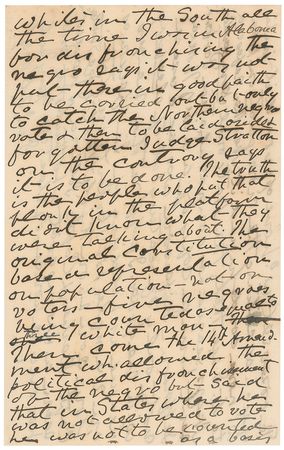 whites in the South all
the time I was in Alabama
bon disfranchising the
negro says it was not
put there in good faith
to be carried out but only
to catch the Northern negro
vote & then to be laid aside &
forgotten Judge Stratton
on the controry says
it is to be done. The truth
is the people who put that
plank in the platform
didnt know what they
were talking about. The
original Constitution
based representation
on population - not on
voters - five negroes
being counted as equal to
three white men - The
Then come the 14th Amend-
ment wh allowed the
political disfranchisement
of the negro but said
that in States where he
was not allowed to vote
he was not to be counted
as a basis